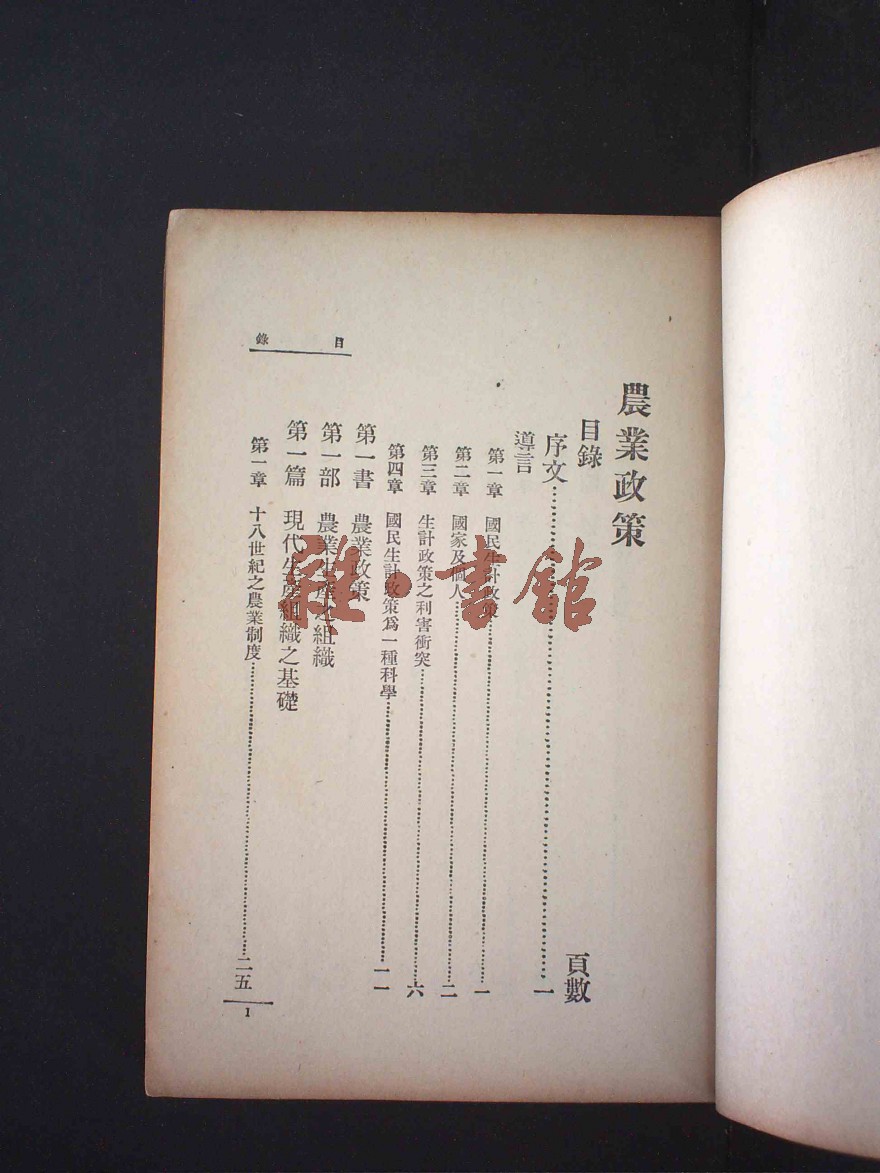 農業政策
目錄 頁數
序文……………………一
導言
第一章 國民生計政策……………………一
第二章 國家及個人……………………二
第三章 生計政策之利害衝突……………………六
第四章 國民生計政策爲一種科學……………………一一
第一書 農業政策
第一部 農業生產之組織
第一篇 現代生產組織之基礎
第一章 十八世紀之農業制度……………………二五
目錄
1
書館